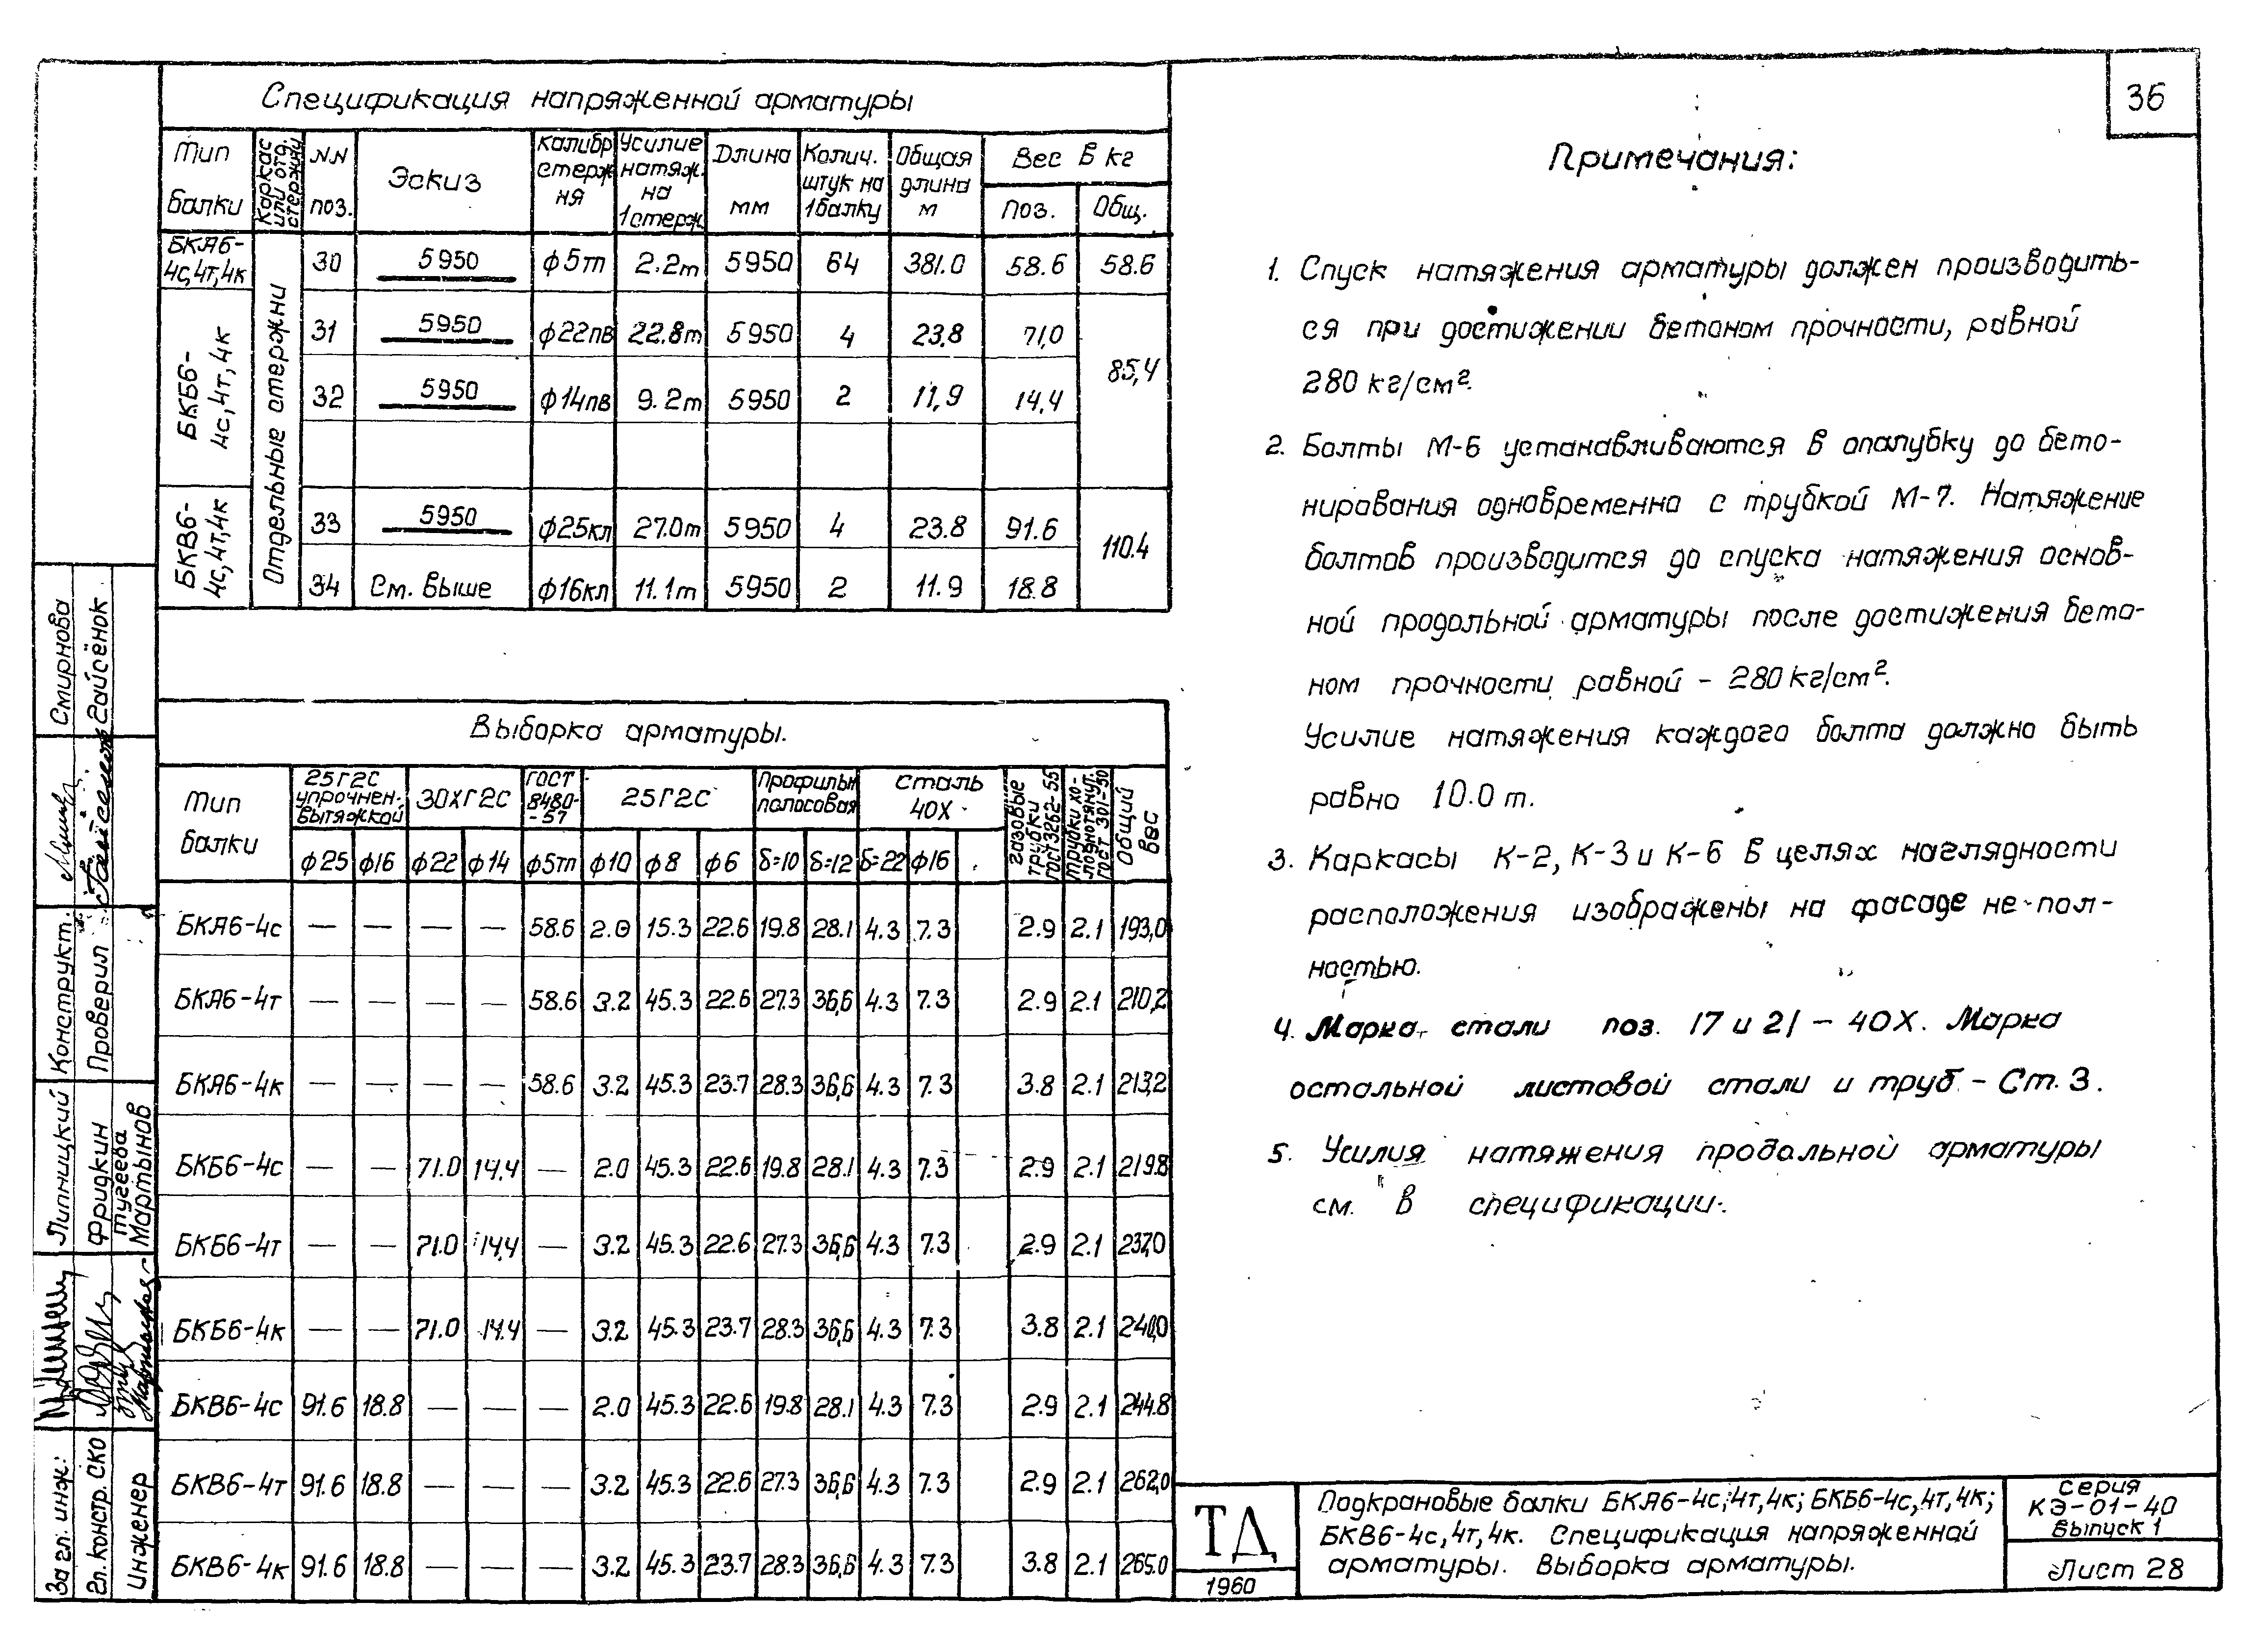 36
Спецификация напряженной арматуры
Тип балки | Каркас или отд. стержни | NN поз. | Эскиз | Калибр стержня | Усилие натяж. на 1 стерж. | Длина мм | Колич. штук на 1 балку | Общая длина м | Вес в кг
Поз. | Общ.
БКА6-4с,4т,4к | Отдельные стержни | 30 | 5950 | ф5тп | 2.2т | 5950 | 64 | 381.0 | 58.6 | 58.6
БКБ6-4с,4т,4к | 31 | 5950 | ф22пв | 22.8т | 5950 | 4 | 23,8 | 71,0 | 85,4
32 | 5950 | ф14пв | 9.2т | 5950 | 2 | 11,9 | 14,4
БКВ6-4с,4т,4к | 33 | 5950 | ф25кл | 27.0т | 5950 | 4 | 23.8 | 91.6 | 110.4
34 | См. выше | ф16кл | 11.1т | 5950 | 2 | 11.9 | 18.8
Выборка арматуры.
Тип балки | 25Г2С упрочнен. вытяжкой | 30ХГ2С | ГОСТ 8480-57 | 25Г2С | Профильн полосовая | Сталь 40Х | Газовые трубки ГОСТ 3262-55 | Трубки холоднотянут. ГОСТ 301-50 | Общий вес
ф25 | ф16 | ф22 | ф14 | ф5тп | ф10 | ф8 | ф6 | δ=10 | δ=12 | δ=22 | ф16
БКА6-4с | — | — | — | — | 58.6 | 2.0 | 15.3 | 22.6 | 19.8 | 28.1 | 4.3 | 7.3 | 2.9 | 2.1 | 193,0
БКА6-4т | — | — | — | — | 58.6 | 3.2 | 45.3 | 22.6 | 27.3 | 36,6 | 4.3 | 7.3 | 2.9 | 2.1 | 210,2
БКА6-4к | — | — | — | — | 58.6 | 3.2 | 45.3 | 23.7 | 28.3 | 36,6 | 4.3 | 7.3 | 3.8 | 2.1 | 213,2
БКБ6-4с | — | — | 71.0 | 14,4 | — | 2.0 | 45.3 | 22.6 | 19.8 | 28.1 | 4.3 | 7.3 | 2.9 | 2.1 | 219.8
БКБ6-4т | — | — | 71.0 | 14,4 | — | 3.2 | 45.3 | 22.6 | 27.3 | 36,6 | 4.3 | 7.3 | 2.9 | 2.1 | 237,0
БКБ6-4к | — | — | 71.0 | 14.4 | — | 3.2 | 45.3 | 23.7 | 28.3 | 36,6 | 4.3 | 7.3 | 3.8 | 2.1 | 240,0
БКВ6-4с | 91.6 | 18.8 | — | — | — | 2.0 | 45.3 | 22.6 | 19.8 | 28.1 | 4.3 | 7.3 | 2.9 | 2.1 | 244.8
БКВ6-4т | 91.6 | 18.8 | — | — | — | 3.2 | 45.3 | 22.6 | 27.3 | 36,6 | 4.3 | 7.3 | 2.9 | 2.1 | 262,0
БКВ6-4к | 91.6 | 18.8 | — | — | — | 3.2 | 45.3 | 23.7 | 28.3 | 36,6 | 4.3 | 7.3 | 3.8 | 2.1 | 265.0
Примечания:
1. Спуск натяжения арматуры должен производить-
ся при достижении бетоном прочности, равной
280 кг/см².
2. Болты М-6 устанавливаются в опалубку до бето-
нирования одновременно с трубкой М-7. Натяжение
болтов производится до спуска натяжения основ-
ной продольной арматуры после достижения бето-
ном прочности равной – 280 кг/см².
Усилие натяжения каждого болта должно быть
равно 10.0 т.
3. Каркасы К-2, К-3 и К-6 в целях наглядности
расположения изображены на фасаде не пол-
ностью.
4. Марка стали поз. 17 и 21 – 40Х. Марка
остальной листовой стали и труб – Ст. 3.
5. Усилия натяжения продольной арматуры
см. в спецификации.
Смирнова
Гайсёнок
Конструкт.
Проверил
Липницкий
Фридкин
Тугеева
Мартынов
За гл. инж.
Гл. констр. СКО
Инженер
ТД
1960
Подкрановые балки БКА6-4с,4т,4к; БКБ6-4с,4т,4к;
БКВ6-4с,4т,4к. Спецификация напряженной
арматуры. Выборка арматуры.
Серия
КЭ-01-40
Выпуск 1
Лист 28